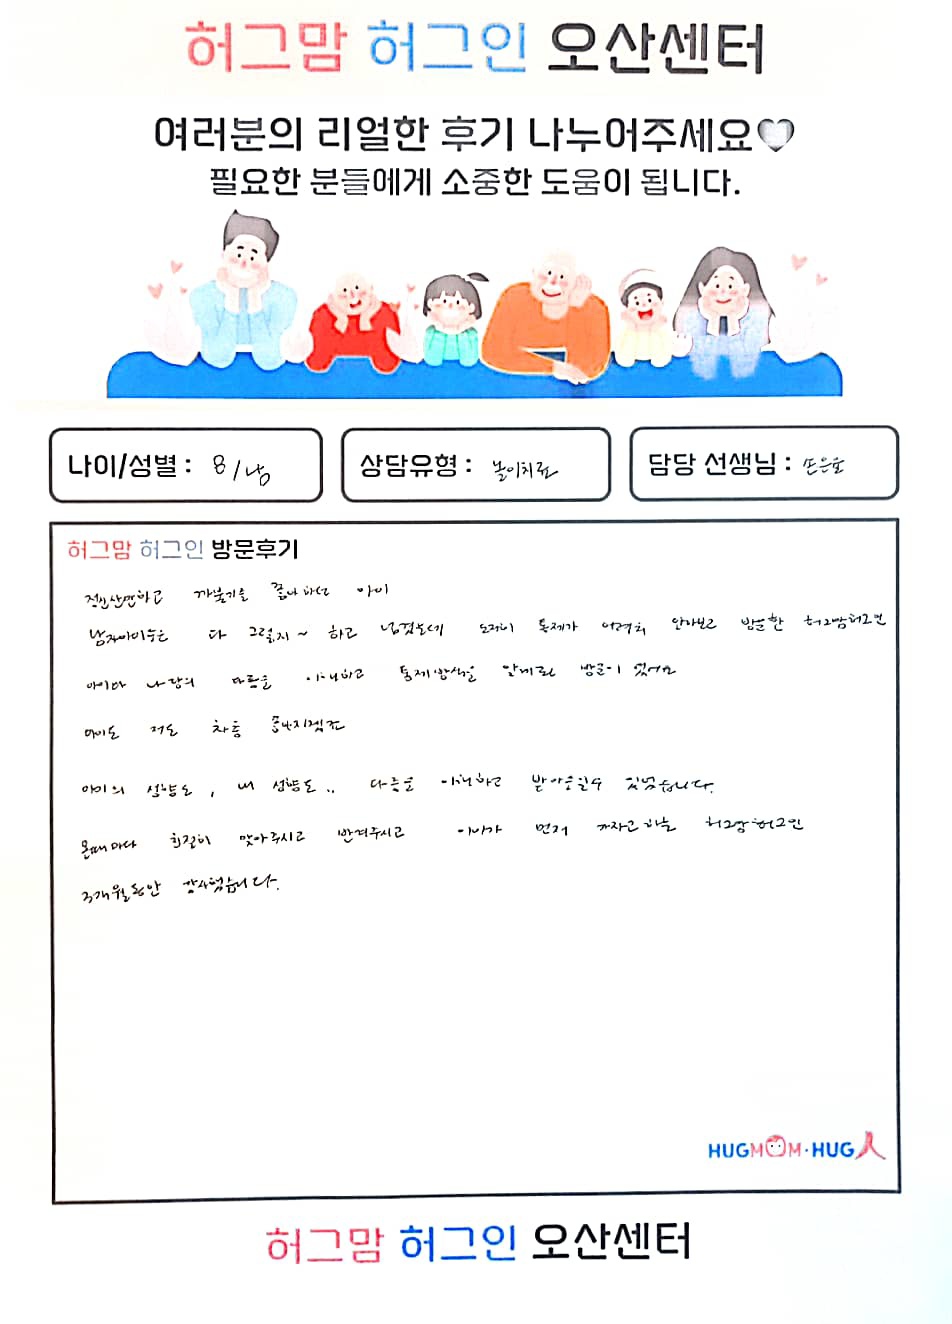 허그맘 허그인 오산센터
여러분의 리얼한 후기 나누어주세요
필요한 분들에게 소중한 도움이 됩니다.
나이/성별 : 8/남
상담유형 : 놀이치료
담당 선생님 :
허그맘 허그인 방문후기
정신산만하고 까불기를 좀 하던 아이
남자아이들은 다 그렇지~ 하고 넘겼는데 도저히 통제가 어려워 알아보고 방문한 허그맘허그인
아이와 나랑의 다름을 이해하고 통제방식을 알게된 방문이 었어요
아이도 저도 차츰
아이의 성향도, 내 성향도.. 다름을 이해하고 받아들일수 있었습니다.
올때마다 친절히 맞아주시고 반겨주시고 아이가 먼저 가자고 하는 허그맘허그인
3개월동안 감사했습니다.
HUGMOM·HUG人
허그맘 허그인 오산센터